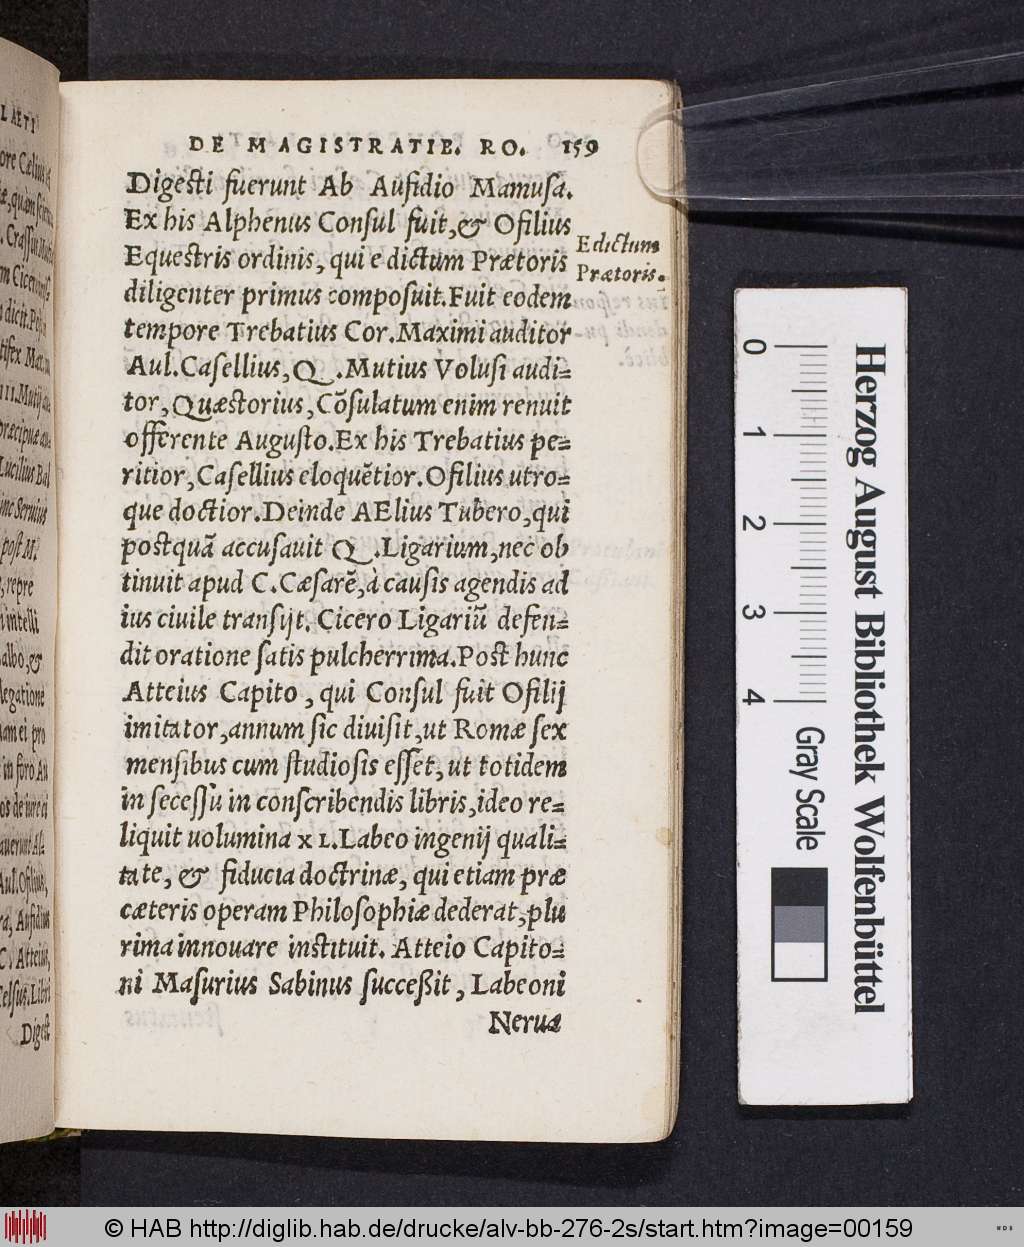 DE MAGISTRATIE. RO. 159
Digesti fuerunt Ab Aufidio Mamusa.
Ex his Alphenus Consul fuit, & Ofilius
Equestris ordinis, qui e dictum Prætoris
diligenter primus composuit. Fuit eodem
tempore Trebatius Cor. Maximi auditor
Aul. Casellius, Q. Mutius Volusi audi=
tor, Quæstorius, Cõsulatum enim renuit
offerente Augusto. Ex his Trebatius pe=
ritior, Casellius eloquẽtior. Ofilius utro=
que doctior. Deinde AElius Tubero, qui
postquã accusauit Q. Ligarium, nec ob
tinuit apud C. Cæsarẽ, à causis agendis ad
ius ciuile transijt. Cicero Ligariũ defen=
dit oratione satis pulcherrima. Post hunc
Atteius Capito, qui Consul fuit Ofilij
imitator, annum sic diuisit, ut Romæ sex
mensibus cum studiosis esset, ut totidem
in secessu in conscribendis libris, ideo re=
liquit uolumina XL. Labeo ingenij quali=
tate, & fiducia doctrinæ, qui etiam præ
cæteris operam Philosophiæ dederat, plu
rima innouare instituit. Atteio Capito=
ni Masurius Sabinus succeßit, Labeoni
Neruæ
Edictum
Prætoris.
LAETI
ore Cælius
. Crassus
dicit.
III. Mutij
præcipuæ
Lucilius Bal
Seruius
post M.
, repre
intelli
albo, &
legatione
iam ei pro
in foro Au
os de iure ci
Aul. Ofilius,
ra, Aufidius
C. Atteius,
Celsus. Libri
Digest
0
1
2
3
4
Gray Scale
Herzog August Bibliothek Wolfenbüttel
© HAB http://diglib.hab.de/drucke/alv-bb-276-2s/start.htm?image=00159
WDB